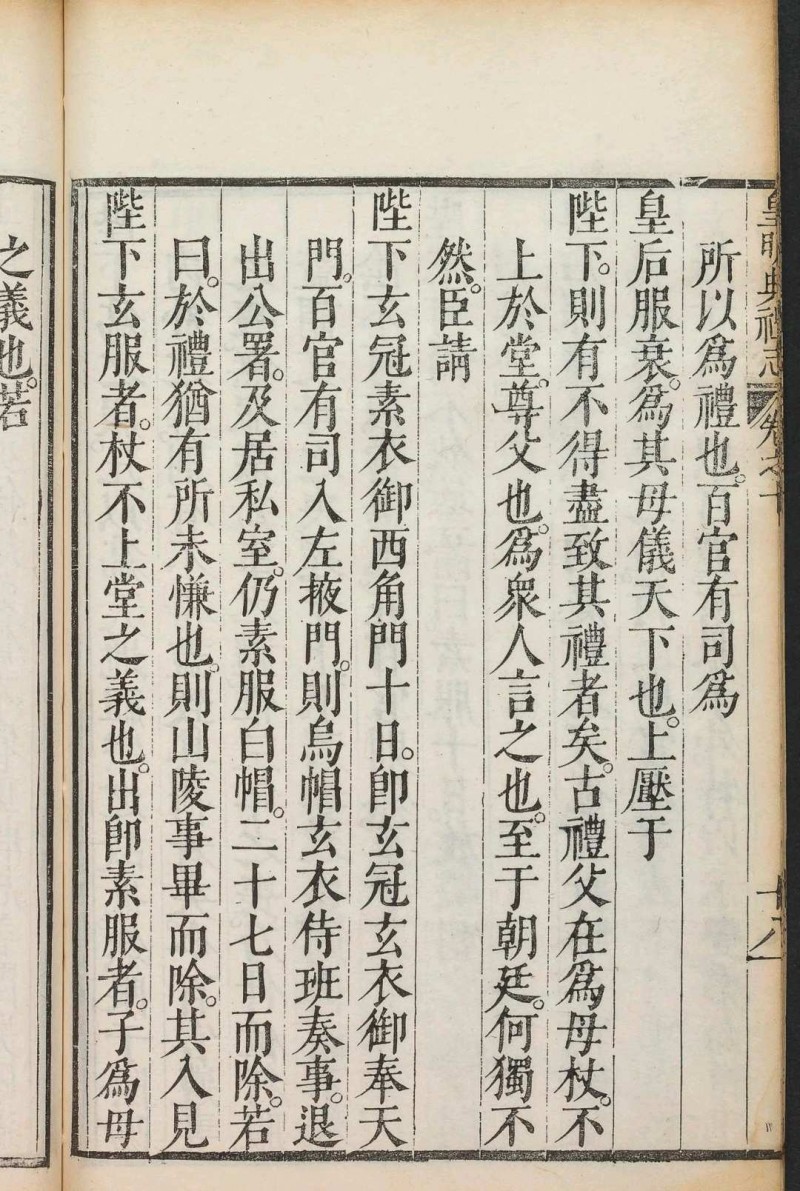 皇明典禮志 卷之十 十八
所以爲禮也。百官有司爲
皇后服衰。爲其母儀天下也。上壓于
陛下。則有不得盡致其禮者矣。古禮父在爲母杖。不
上於堂。尊父也。爲衆人言之也。至于朝廷。何獨不
然。臣請
陛下玄冠素衣御西角門十日。卽玄冠玄衣御奉天
門。百官有司入左掖門。則烏帽玄衣侍班奏事。退
出公署。及居私室。仍素服白帽。二十七日而除。若
曰。於禮猶有所未慊也。則山陵事畢而除。其入見
陛下玄服者。杖不上堂之義也。出卽素服者。子爲母
之義也。若